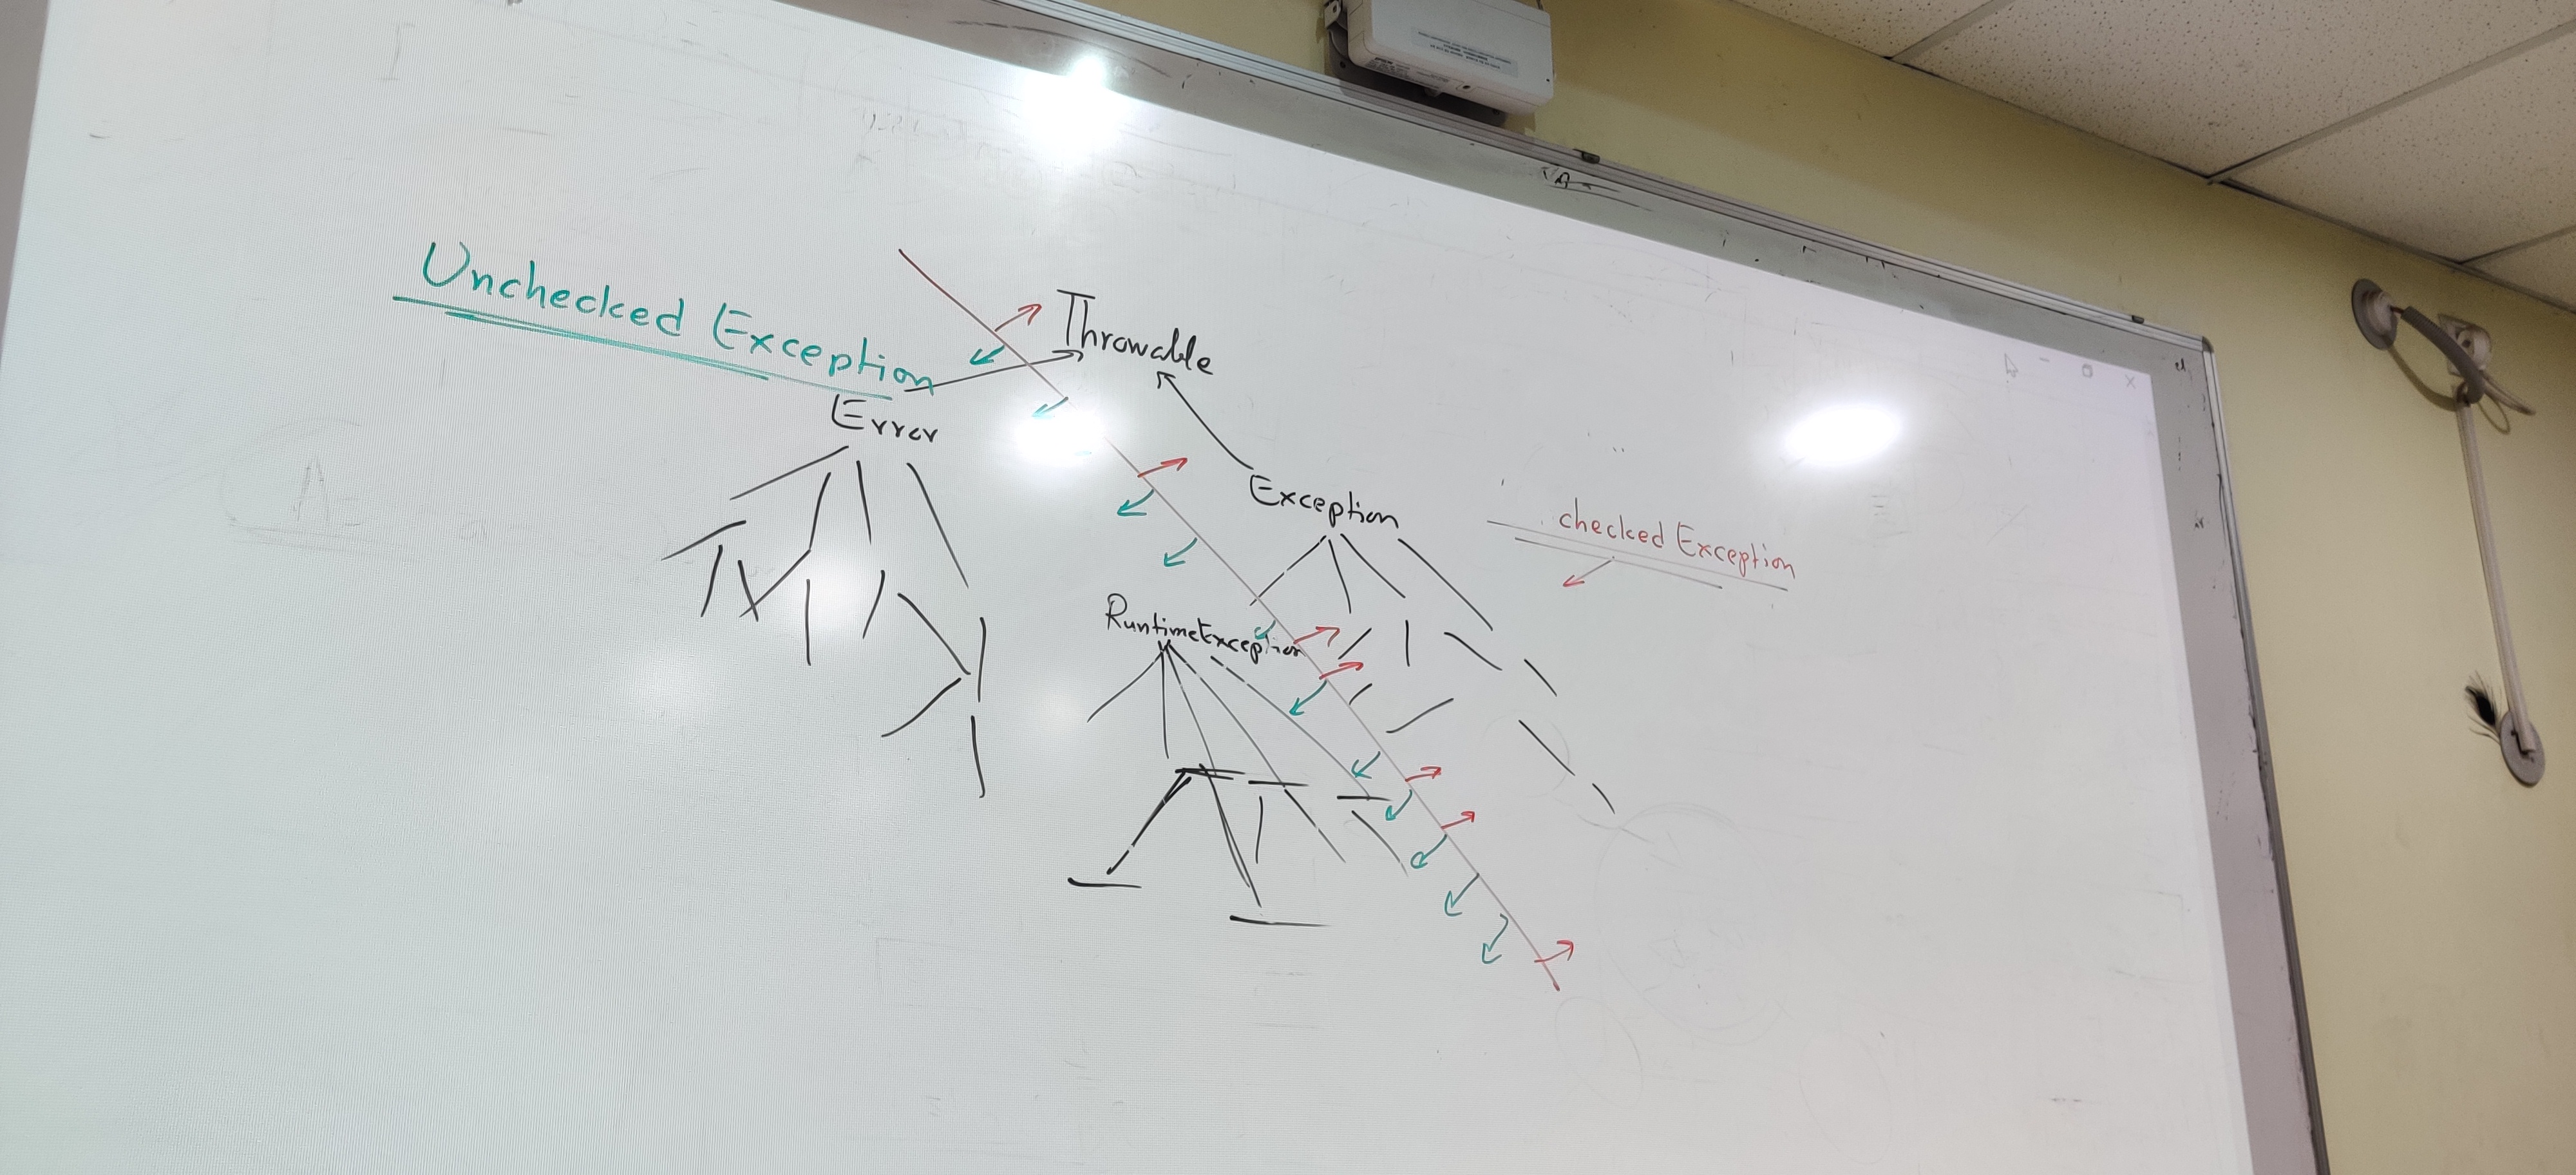 Unchecked Exception
Throwable
Error
Exception
checked Exception
RuntimeException